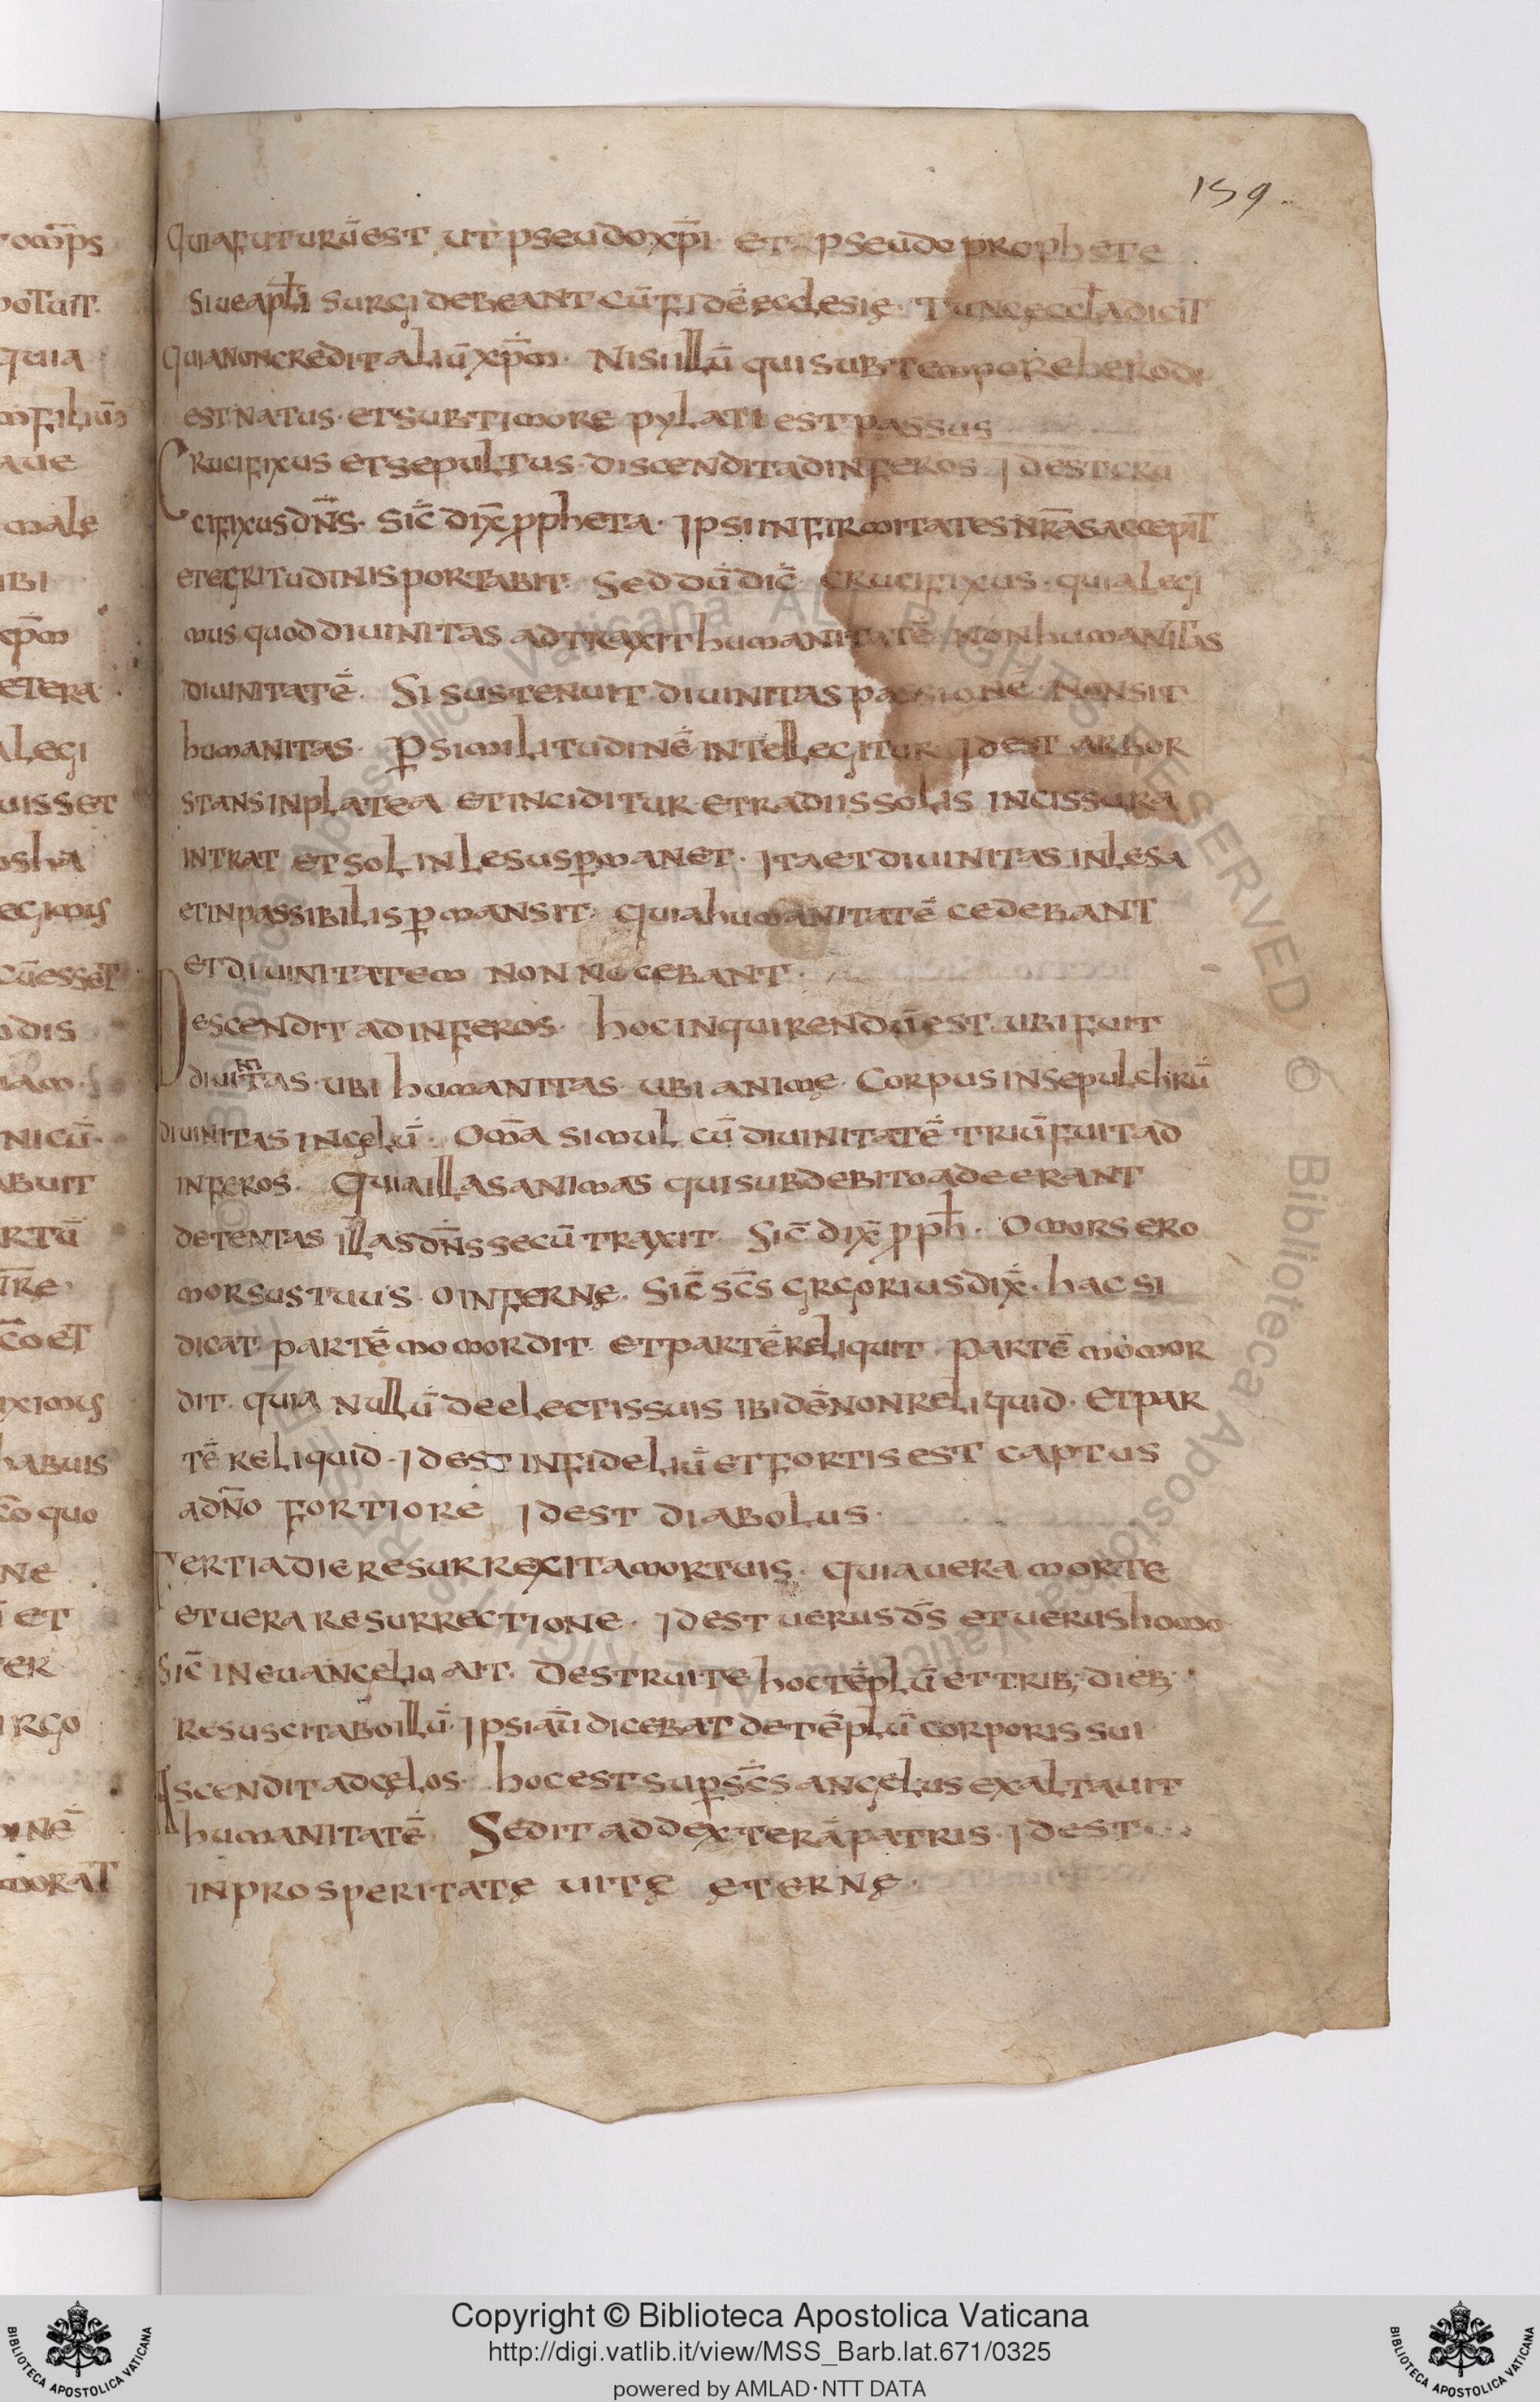 159.
Quia futurū est ut pseudoxp̄i et pseudo prophete
siue apłi surgi debeant cū fidē ecclesię. Tunc ęccła dicit
quia non credit aliū xp̄m. Nisi illū qui sub tempore herodi
est natus. et sub timore pylati est passus
Crucifixus et sepultus. discendit ad inferos. Id est cru
cifixus dn̄s. Sic̄ dix̄ ꝓpheta. Ipsi infirmitates nr̄as accepit
et egritudinis portabit. Sed dū dic̄ crucifixus. quia legi
mus quod diuinitas adtraxit humanitatē non humanitas
diuinitatē. Si sustenuit diuinitas passionē. Non sit
humanitas. ꝑ similitudinē intellegitur id est arbor
stans in platea et inciditur et radiis solis incissura
intrat et sol inlesus ꝑmanet. Ita et diuinitas inlesa
et inpassibilis ꝑmansit. quia humanitatē cedebant
et diuinitatem non nocebant.
Descendit ad inferos. hoc inquirendū est. ubi fuit
diuinitas. ubi humanitas. ubi animę. Corpus in sepulchrū
diuinitas in cęlū. Om̄a simul cū diuinitatē triū fuit ad
inferos. Quia illas animas qui sub debito ade erant
detentas illas dn̄s secū traxit. Sic̄ dix̄ ꝓph. O mors ero
morsus tuus. o infernę. Sic̄ sc̄s grgorius dix̄. hac si
dicat partē momordit et partē reliquit. Partē momor
dit. quia nullū de electis suis ibidē non reliquid. Et par
tē reliquid. Id est infideliū et fortis est captus
a dn̄o fortiore id est diabolus.
Tertia die resurrexit a mortuis. quia uera morte
et uera resurrectione. Id est uerus ds̄ et uerus homo
Sic̄ in euangelio ait. Destruite hoc tēplū et trib; dieb;
resuscitabo illū. Ipsi aū dicebat de tēplū corporis sui
Ascendit ad cęlos. hoc est suꝑ sc̄s angelus exaltauit
humanitatē. Sedit ad dexterā patris. Id est
in prosperitatę uitę ęternę.
Copyright © Biblioteca Apostolica Vaticana
http://digi.vatlib.it/view/MSS_Barb.lat.671/0325
powered by AMLAD·NTT DATA